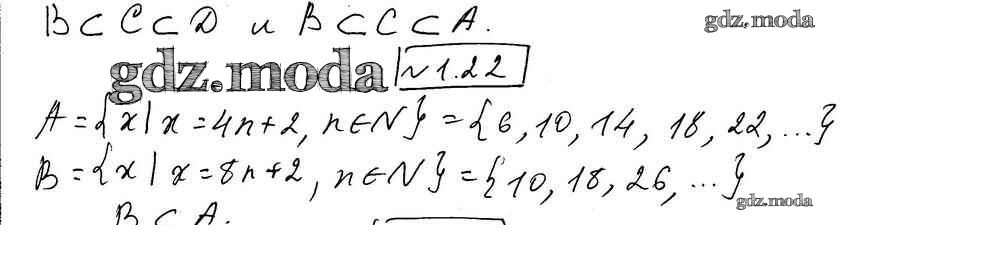 B ⊂ C ⊂ D и B ⊂ C ⊂ A.
gdz.moda
gdz.moda
№1.22
A = {x | x = 4n+2, n ∈ N} = {6, 10, 14, 18, 22, ...}
B = {x | x = 8n+2, n ∈ N} = {10, 18, 26, ...}
gdz.moda
B ⊂ A.